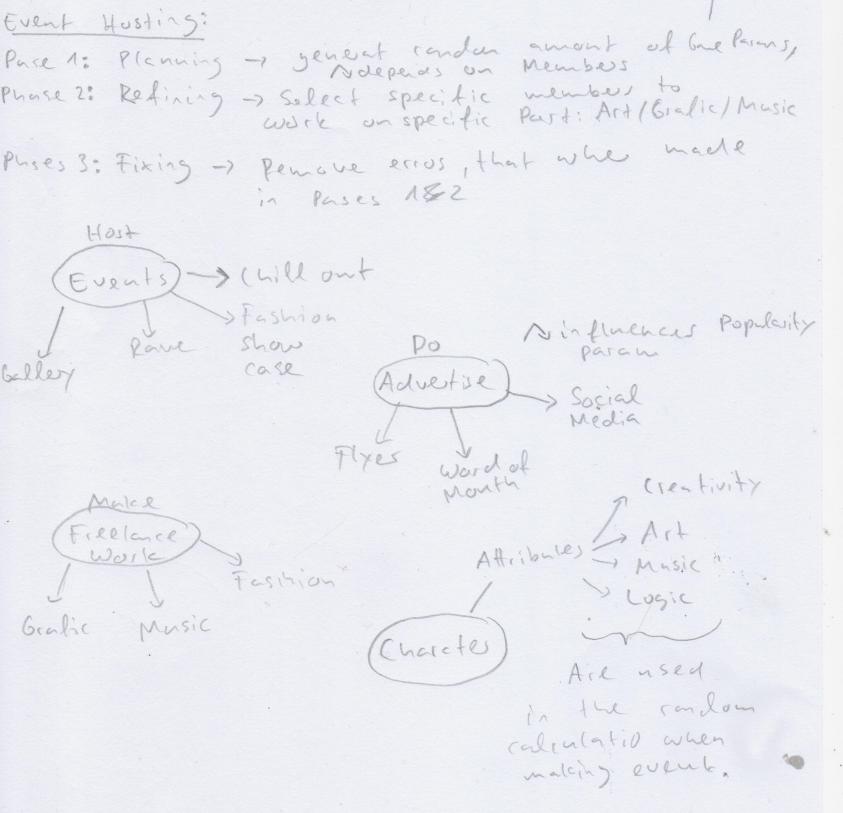 Event Hosting:
Pace 1: Planning → generat randon amount of Gme Params,
depends on Members
Phase 2: Refining → Select specific members to
work on specific Part: Art/Grafic/Music
Phases 3: Fixing → Remove erros, that wher made
in Pases 1&2
Host
Events → Chill out
Fashion
show
case
Rave
Gallery
influences Popularity
param
Do
Advertise
Social
Media
Flyes
Word of
Mouth
Make
Freelance
Work
Fashion
Grafic
Music
Creativity
Attribules
Art
Music
Logic
Charctes
Are used
in the random
calculatio when
making event.